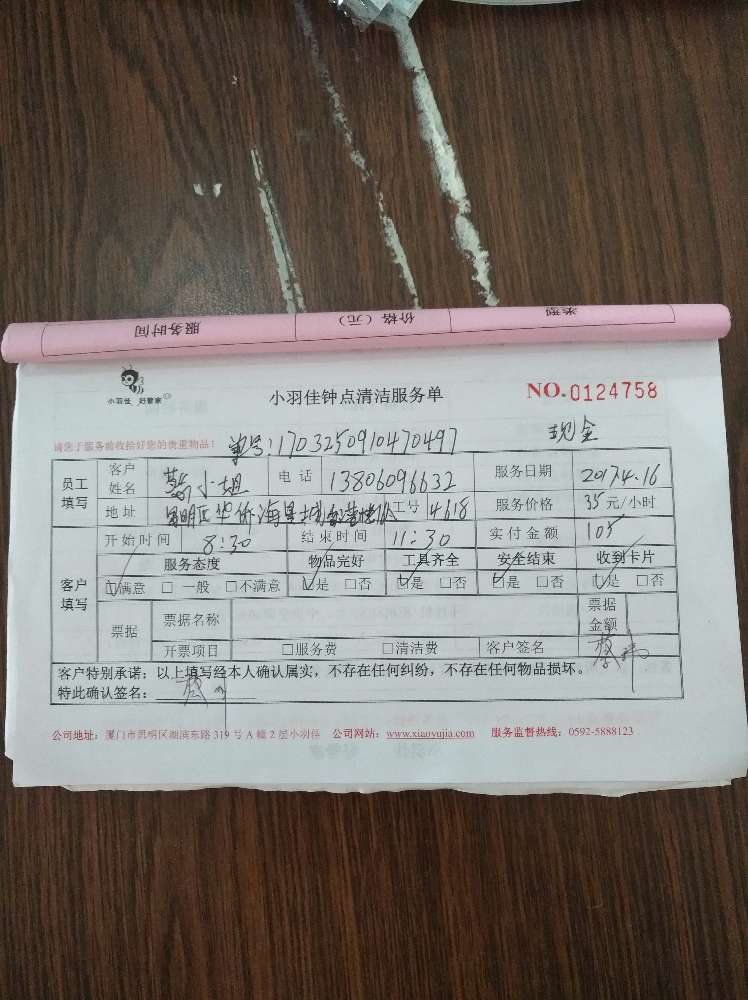 服务时间 价格（元） 类型
小羽佳 好管家
小羽佳钟点清洁服务单 NO.0124758
请您于服务前收拾好您的贵重物品！ 单号:1703250910470497 现金
员工填写 客户姓名 蔡小姐 电话 13806096632 服务日期 2017.4.16
地址 思明区华侨海景城 工号 4618 服务价格 35元/小时
客户填写 开始时间 8:30 结束时间 11:30 实付金额 105
服务态度 物品完好 工具齐全 安全结束 收到卡片
☑满意 □一般 □不满意 ☑是 □否 ☑是 □否 ☑是 □否 ☑是 □否
票据 票据名称 票据金额
开票项目 □服务费 □清洁费 客户签名 蔡
客户特别承诺：以上填写经本人确认属实，不存在任何纠纷，不存在任何物品损坏。
特此确认签名： 蔡
公司地址：厦门市思明区湖滨东路 319 号 A 幢 2 层小羽佳 公司网站：www.xiaoyujia.com 服务监督热线：0592-5888123